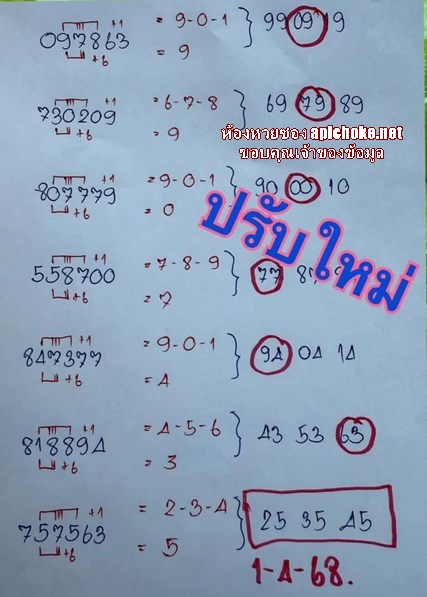 +1 = 9-0-1
097863 99 09 19
+6 = 9
+1 = 6-7-8
730209 69 79 89
+6 = 9
ห้องหวยซอง apichoke.net
ขอบคุณเจ้าของข้อมูล
+1 = 9-0-1
807779 90 00 10
+6 = 0
ปรับใหม่
+1 = 7-8-9
558700 77
+6 = 7
+1 = 9-0-1
847377 94 04 14
+6 = 4
+1 = 4-5-6
818894 43 53 63
+6 = 3
+1 = 2-3-4
757563 25 35 45
+6 = 5
1-4-68.